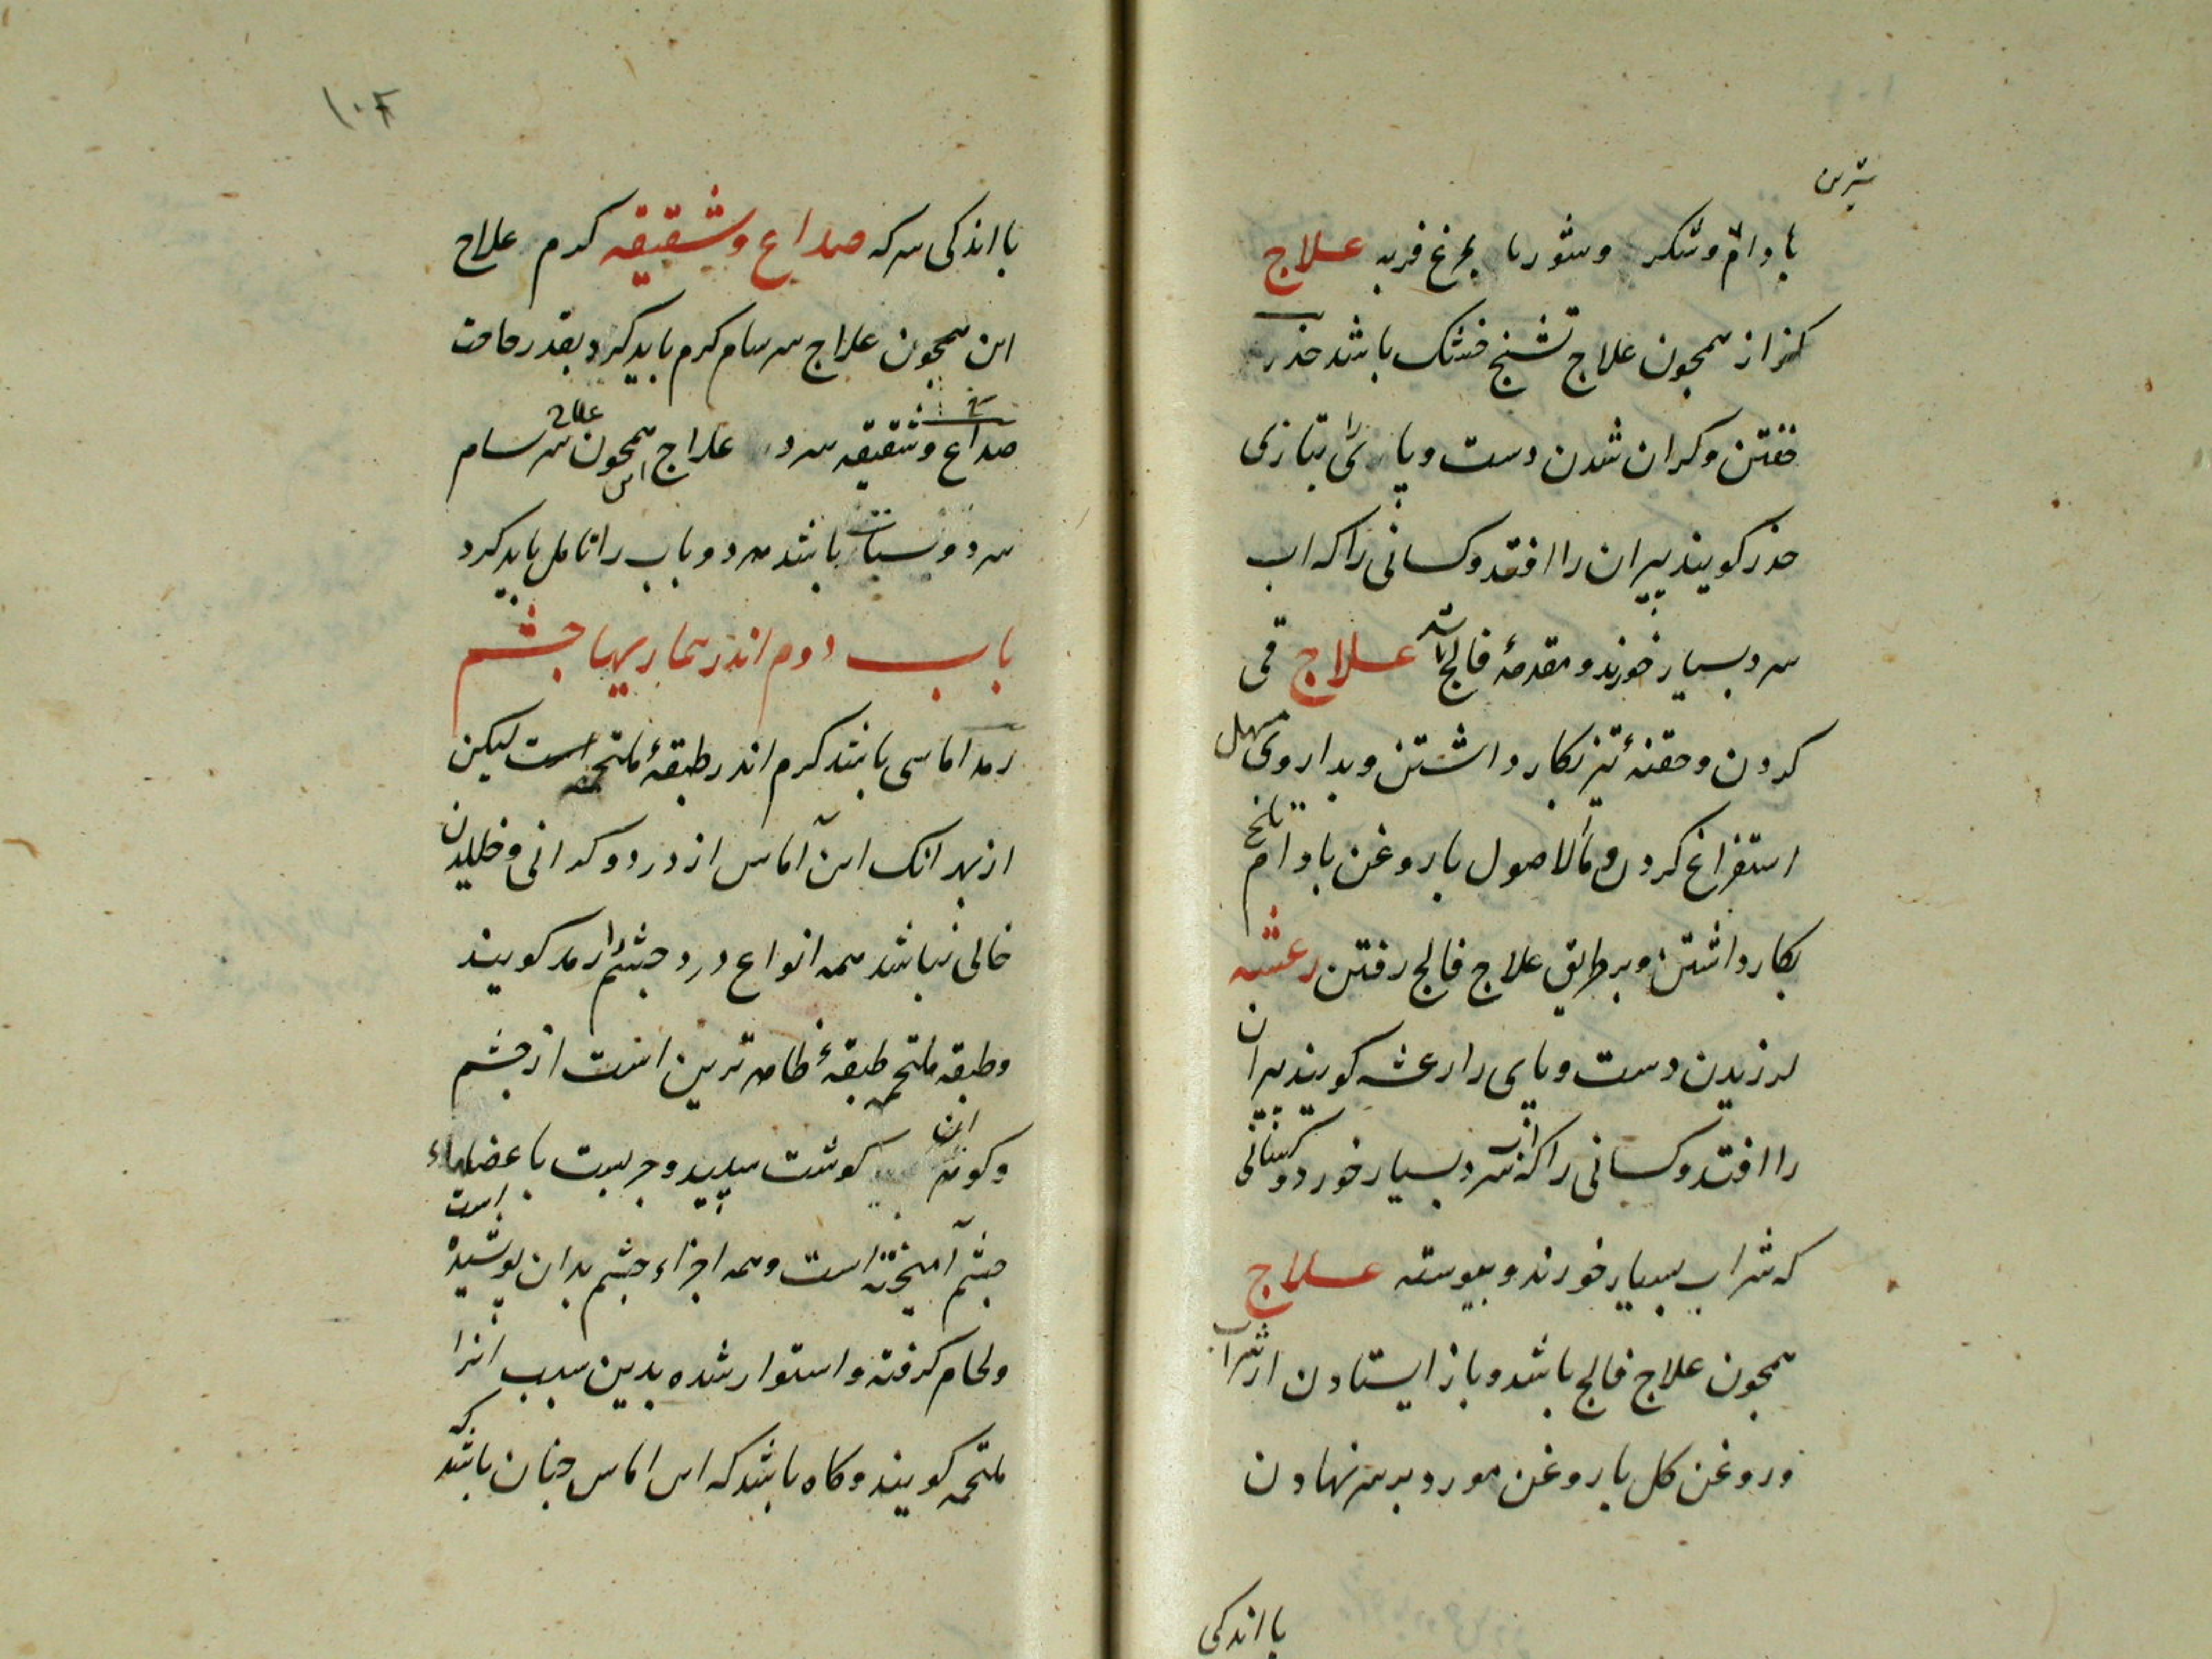 شیرین
بادام و شکر و شوربا بمرغ فربه علاج
کزاز همچون علاج تشنج خشک باشد خدر
خفتن و کران شدن دست و پای را بتازی
خدر کویند پیران را افتد و کسانی را که اب
سرد بسیار خورند و مقدمهٔ فالج باشد علاج قی
کردن و حقنهٔ تیز بکار داشتن و بداروی مسهل
استفراغ کردن و ماالاصول با روغن بادام تلخ
بکار داشتن و بر طریق علاج فالج رفتن رعشه
لرزیدن دست و پای را رعشه کویند پیران
را افتد و کسانی را که اب سرد بسیار خورد و کسانی
که شراب بسیار خورند و پیوسته علاج
همچون علاج فالج باشد و باز ایستادن از شراب
و روغن کل با روغن مورد بر سر نهادن
با اندکی
۱۰۴
با اندکی سرکه صداع و شقیقه کرم علاج
این همچون علاج سرسام کرم باید کرد بقدر حاجت
صداع و شقیقه سرد علاج این همچون علاج سرسام
سرد و سبات باشد هر دو باب را تامل باید کرد
باب دوم اندر بیماریها چشم
رمد اماسی باشد کرم اندر طبقهٔ ملتحمه است لیکن
از بهر انک این آماس از درد و کرانی و خلیدن
خالی نباشد همه انواع درد چشم را رمد کویند
و طبقه ملتحمه طبقهٔ ظاهر ترین است از چشم
و کونه این کوشت سپید و چربست با عضلهاء
چشم آمیخته است و همه اجزاء چشم بدان پوشیده است
و لحام کرفته و استوار شده بدین سبب انرا
ملتحمه کویند و کاه باشد که این اماس چنان باشد که